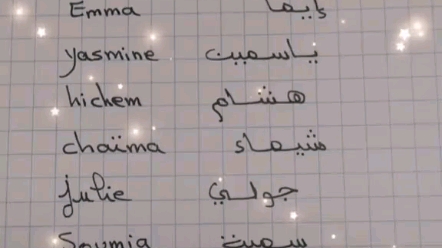 Emma إيما
yasmine ياسمين
hichem هشام
chaïma شيماء
julie جولي
Soumia سمية